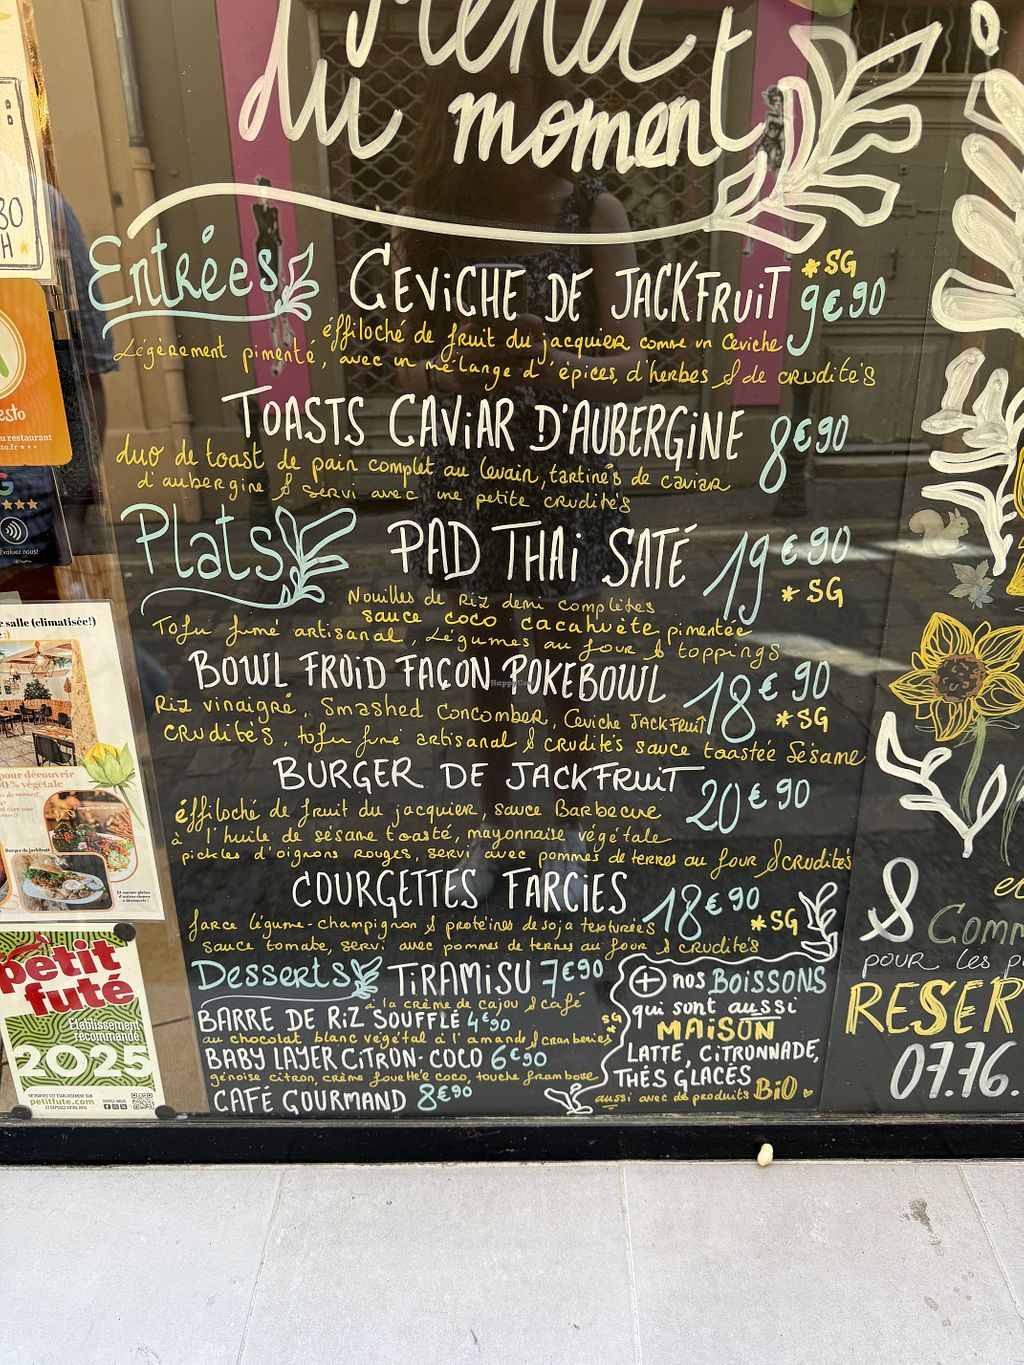 Menu
du moment
Entrées
CEVICHE DE JACKFRUIT
*SG
9€90
éffiloché de fruit du jacquier comme un Ceviche
Légèrement pimenté, avec un mélange d'épices, d'herbes & de crudités
TOASTS CAVIAR D'AUBERGINE 8€90
duo de toast de pain complet au levain, tartinés de caviar
d'aubergine & servi avec une petite crudités
Plats
PAD THAI SATÉ 19€90
*SG
Nouilles de Riz demi complètes
sauce coco cacahuète pimentée
Tofu fumé artisanal, Légumes au four & toppings
BOWL FROID FAÇON POKEBOWL 18€90
*SG
Riz vinaigré, Smashed Concomber, Ceviche JACKFRUIT
CRUDITÉS, tofu fumé artisanal & crudités sauce toastée Sésame
BURGER DE JACKFRUIT 20€90
éffiloché de fruit du jacquier, sauce Barbecue
à l'huile de sésame toasté, mayonnaise végétale
pickles d'oignons rouges, servi avec pommes de terres au four & crudités
COURGETTES FARCIES 18€90
*SG
farce légume-champignon & protéines de soja texturées
sauce tomate, servi avec pommes de terres au four & crudités
Desserts
TIRAMISU 7€90
à la crème de cajou & café
BARRE DE RIZ SOUFFLÉ 4€90
*SG
au chocolat blanc végétal à l'amande & cranberries
BABY LAYER CITRON-COCO 6€90
génoise citron, crème fouettée coco, touche framboise
CAFÉ GOURMAND 8€90
+ nos BOISSONS
qui sont aussi
MAISON
LATTE, CITRONNADE,
THÉS GLACÉS
aussi avec des produits BIO
&
Comm
pour les p
RESER
07.76.
30
H
esto
u restaurant
sto.fr
Évaluez nous!
e salle (climatisée!)
pour découvrir
0% végétale
Courgettes farcies
Burger de jackfruit
Et encore pleins
d'autres choses
à découvrir!
petit
futé
Établissement
recommandé
2025
RETROUVEZ CET ÉTABLISSEMENT SUR
petitfute.com
ET DÉPOSEZ VOTRE AVIS!
HappyCow